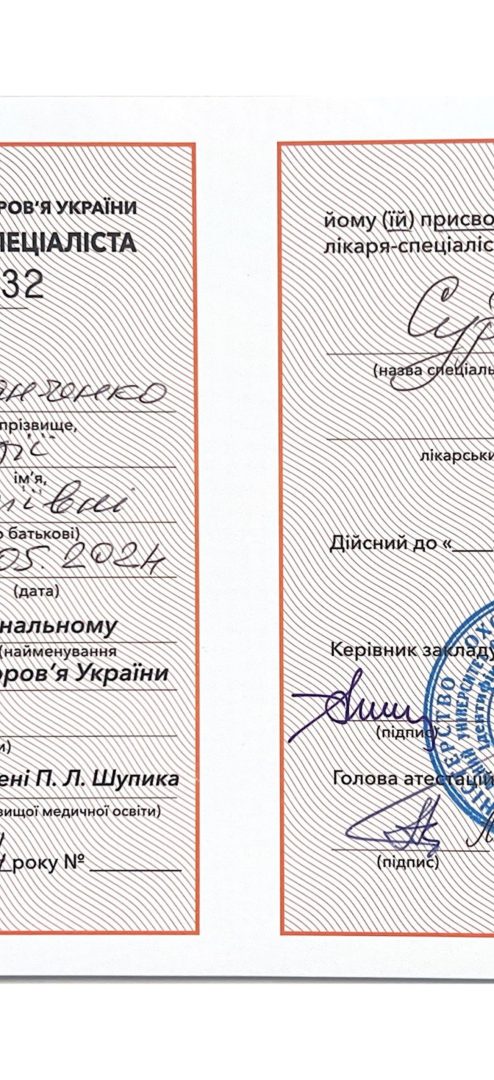 РОВ'Я УКРАЇНИ
ПЕЦІАЛІСТА
32
анченко
прізвище,
ії
ім'я,
ївні
о батькові)
05.2024
(дата)
нальному
(найменування
оров'я України
и)
ені П. Л. Шупика
вищої медичної освіти)
року №
йому (їй) присво
лікаря-спеціаліс
Сур
(назва спеціаль
лікарськи
Дійсний до «
Керівник закладу
(підпис)
Голова атестацій
(підпис)